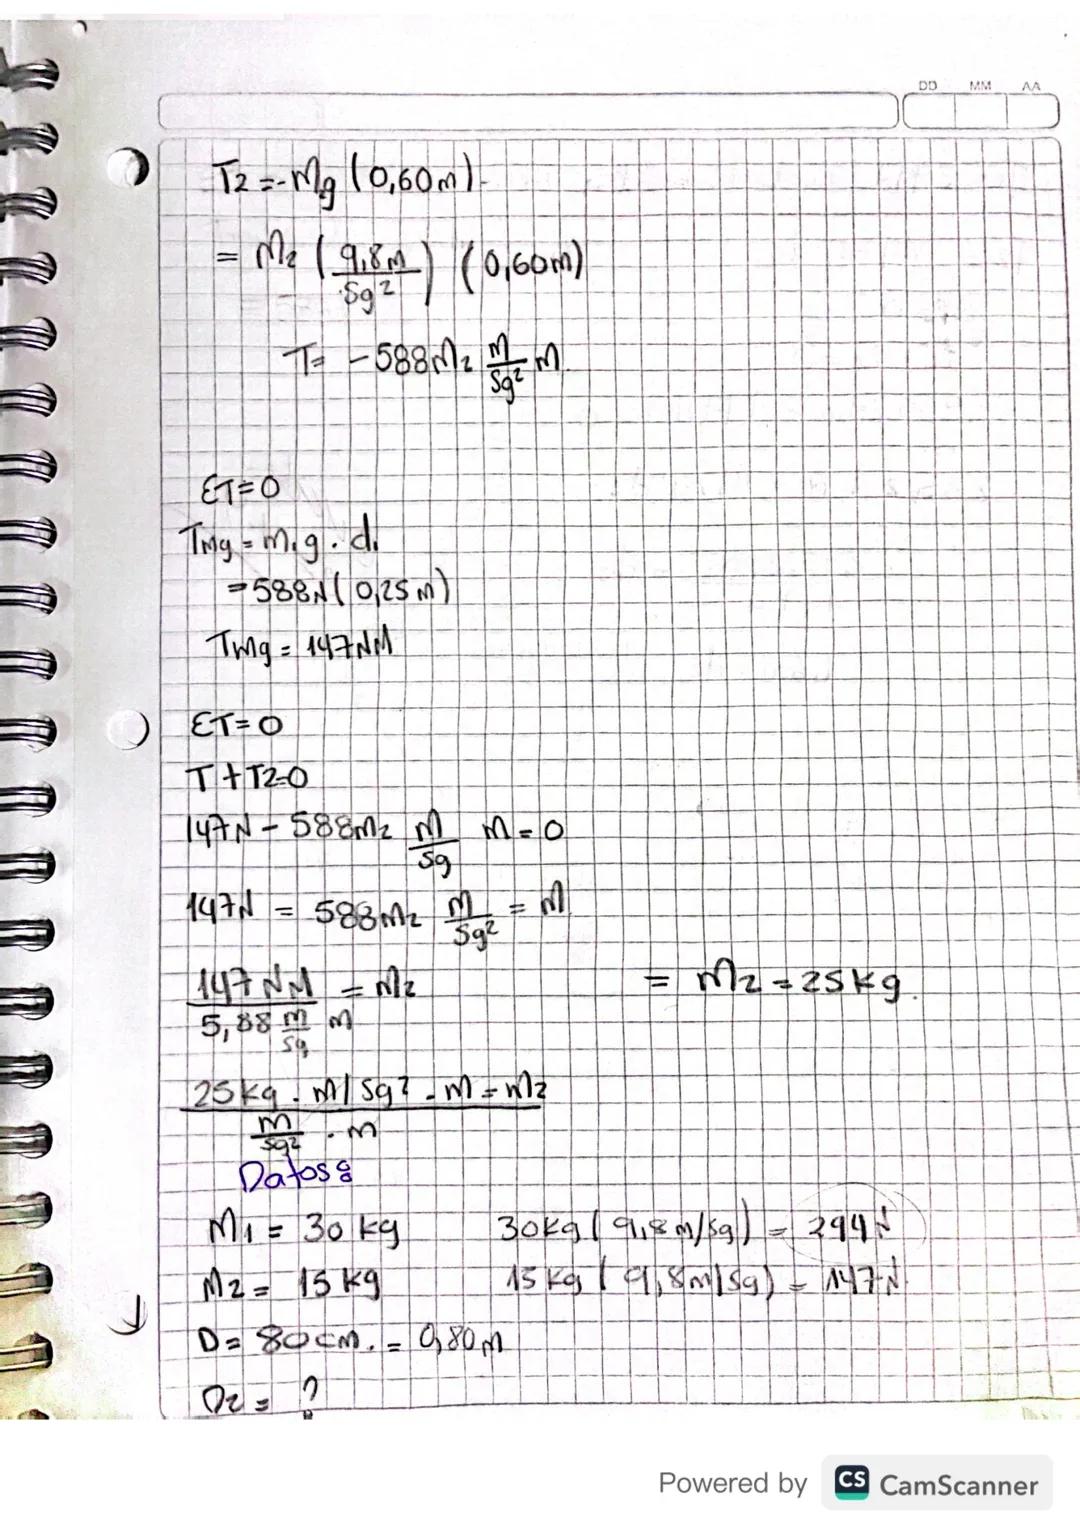 DD MM AA
T2 = -Mg (0,60m)
= M2 (9,8m/Sg²) (0,60m)
T= -588M2 M/Sg² M
ƐT=0
TMg = m1g . d1
=588N(0,25m)
TMg = 147NM
ƐT=0
T+T2=0
147N - 588M2 M/Sg M=0
147N = 588M2 M/Sg² = M
147NM / 5,88 m/Sg M = M2 = M2 = 25kg.
25kg . M/Sg² . M = M2
m/Sg² . m
Datos:
M1 = 30 kg 30kg (9,8m/sg) = 294N
M2 = 15 kg 15 kg (9,8m/sg) = 147N
D= 80cm. = 0,80M
D2 = ?
Powered by CS CamScanner